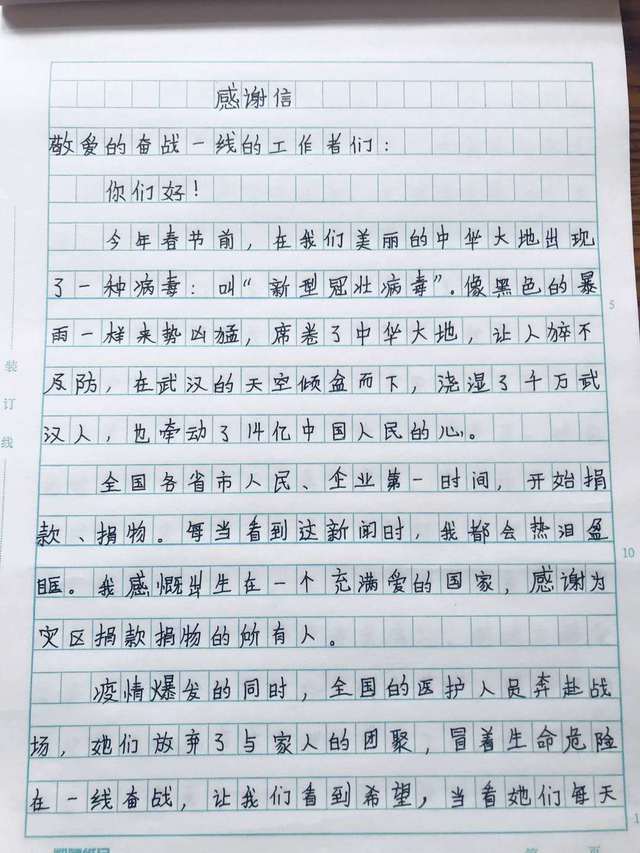 感谢信
敬爱的奋战一线的工作者们：
你们好！
今年春节前，在我们美丽的中华大地出现
了一种病毒：叫“新型冠壮病毒”.像黑色的暴
雨一样来势凶猛，席卷了中华大地，让人猝不
及防，在武汉的天空倾盆而下，浇湿了千万武
汉人，也牵动了14亿中国人民的心。
全国各省市人民、企业第一时间，开始捐
款、捐物。每当看到这新闻时，我都会热泪盈
眶。我感慨出生在一个充满爱的国家，感谢为
灾区捐款捐物的所有人。
疫情爆发的同时，全国的医护人员奔赴战
场，她们放弃了与家人的团聚，冒着生命危险
在一线奋战，让我们看到希望，当看她们每天
装订线
5
10